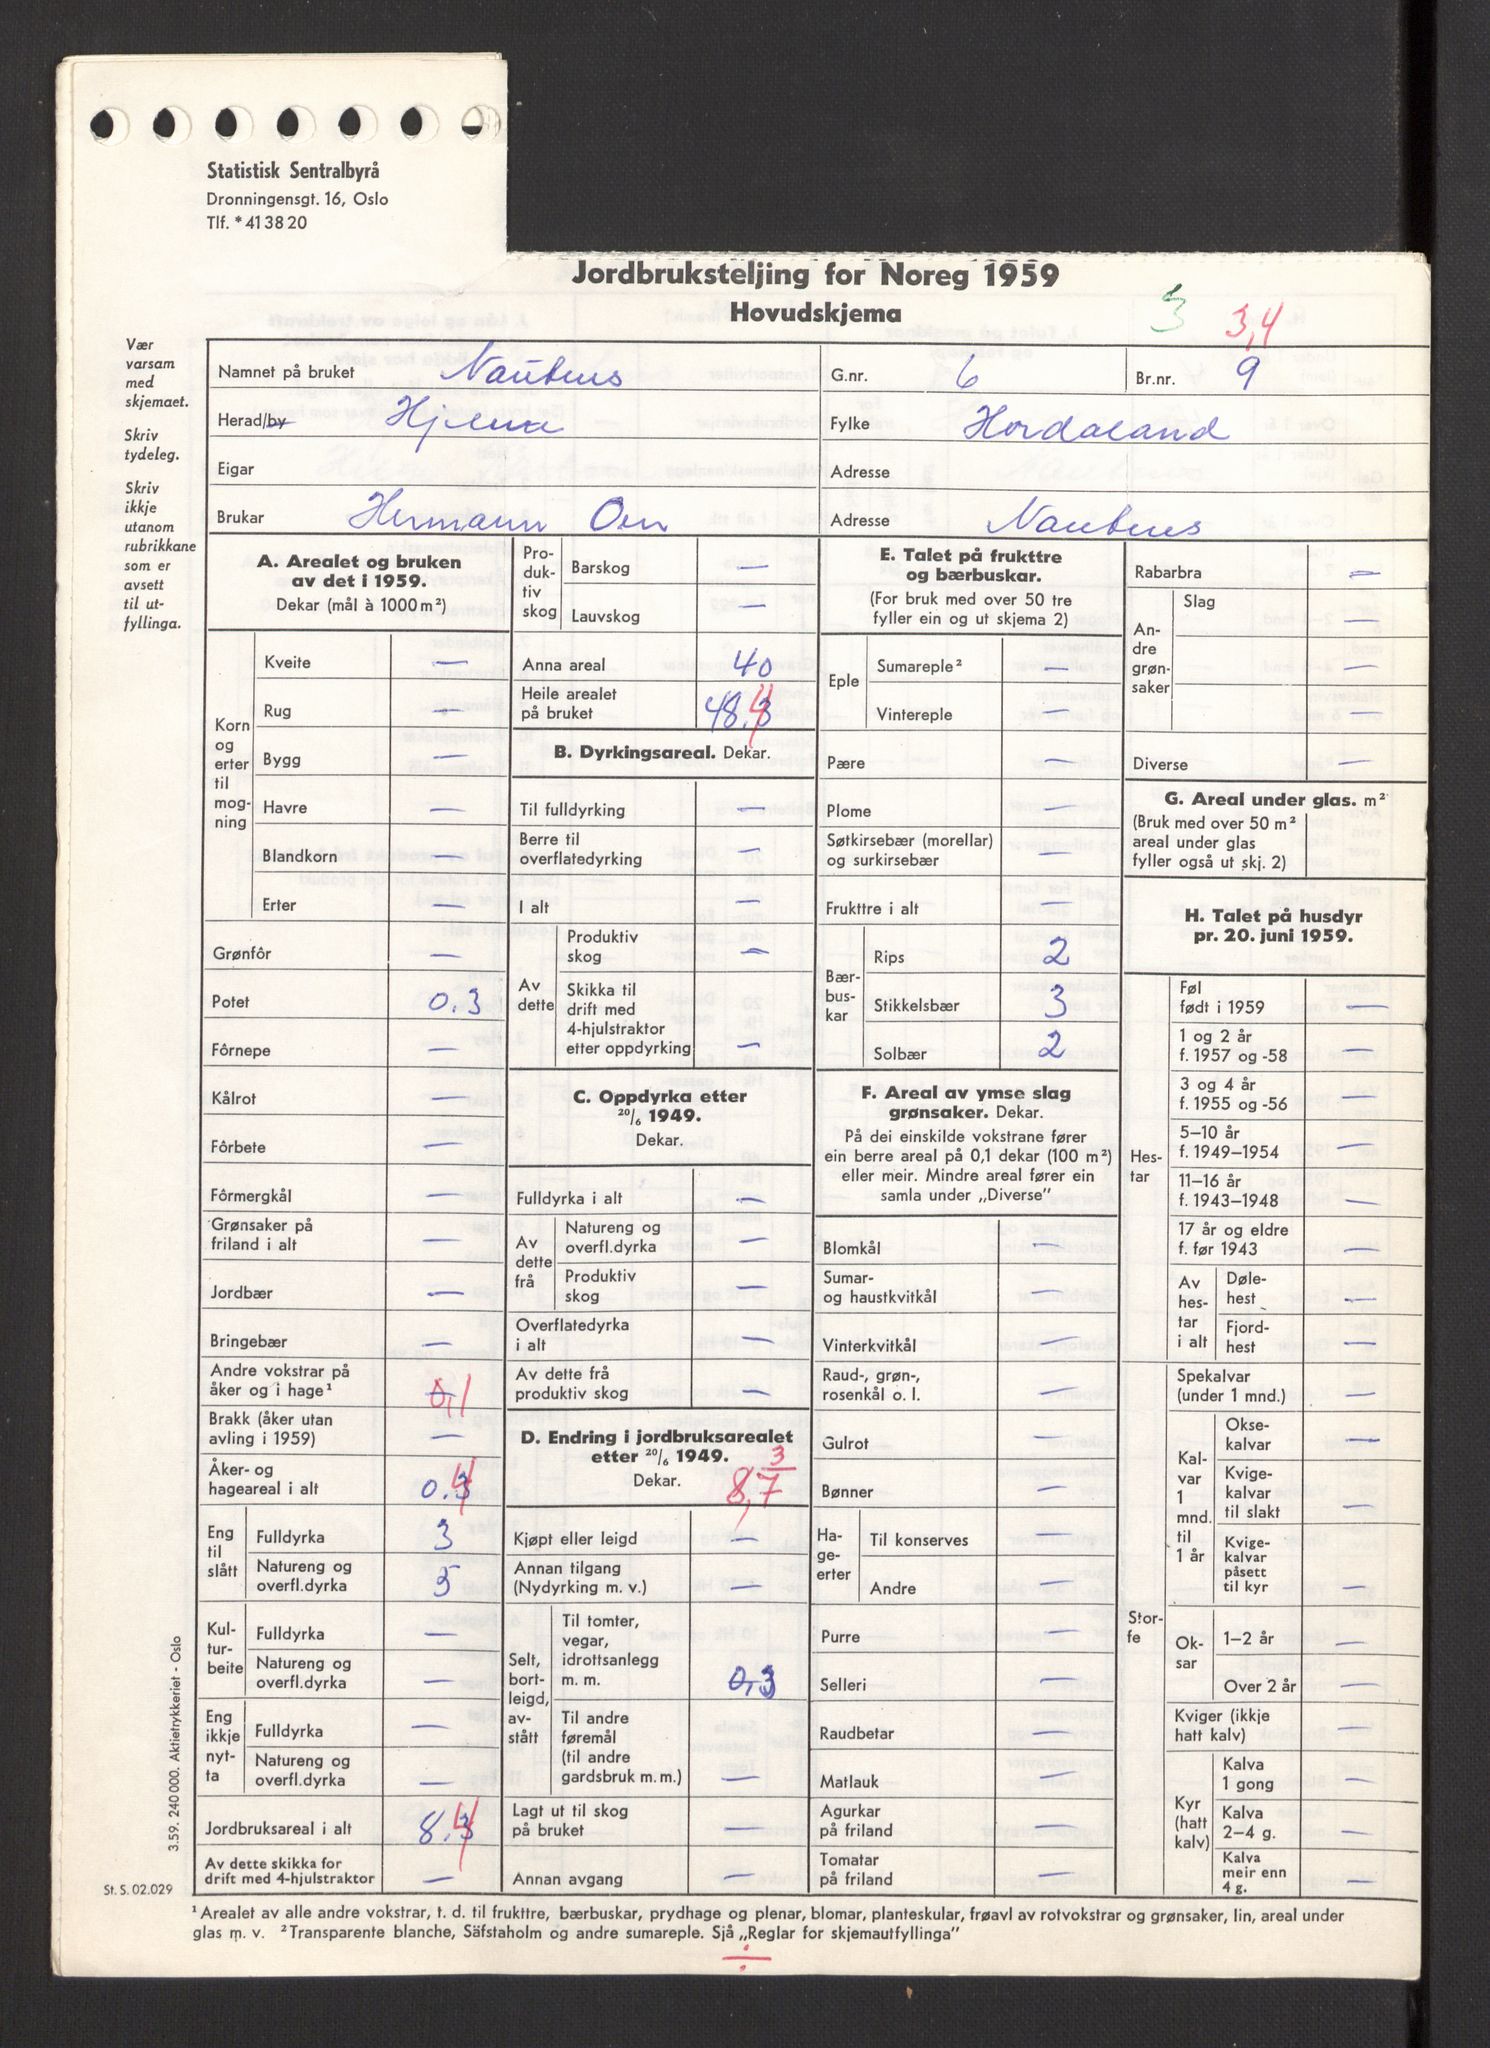 Statistisk Sentralbyrå
Dronningensgt. 16, Oslo
Tlf. *413820
Jordbruksteljing for Noreg 1959
Hovudskjema
3 3,4
Vær
varsam
med
skjemaet.
Skriv
tydeleg.
Skriv
ikkje
utanom
rubrikkane
som er
avsett
til ut-
fyllinga.
Namnet på bruket Naustnes G.nr. 6 Br.nr. 9
Herad/by Hjelme Fylke Hordaland
Eigar Adresse
Brukar Hermann Oen Adresse
A. Arealet og bruken
av det i 1959.
Dekar (mål à 1000 m²)
Korn
og
erter
til
mog-
ning
Kveite —
Rug —
Bygg —
Havre —
Blandkorn —
Erter —
Grønfôr —
Potet 0.3
Fôrnepe —
Kålrot —
Fôrbete —
Fôrmergkål —
Grønsaker på
friland i alt —
Jordbær —
Bringebær —
Andre vokstrar på
åker og i hage¹ 0,1
Brakk (åker utan
avling i 1959) —
Åker- og
hageareal i alt 0.3 4
Eng
til
slått
Fulldyrka 3
Natureng og
overfl.dyrka 5
Kul-
tur-
beite
Fulldyrka —
Natureng og
overfl.dyrka —
Eng
ikkje
nyt-
ta
Fulldyrka —
Natureng og
overfl.dyrka —
Jordbruksareal i alt 8.3 4
Av dette skikka for
drift med 4-hjulstraktor —
Pro-
duk-
tiv
skog
Barskog —
Lauvskog —
Anna areal 40
Heile arealet
på bruket 48.3 4
B. Dyrkingsareal. Dekar.
Til fulldyrking —
Berre til
overflatedyrking —
I alt —
Av
dette
Produktiv
skog —
Skikka til
drift med
4-hjulstraktor
etter oppdyrking —
C. Oppdyrka etter
20/6 1949.
Dekar.
Fulldyrka i alt —
Av
dette
frå
Natureng og
overfl.dyrka —
Produktiv
skog —
Overflatedyrka
i alt —
Av dette frå
produktiv skog —
D. Endring i jordbruksarealet
etter 20/6 1949.
Dekar. 3
8,7
Kjøpt eller leigd —
Annan tilgang
(Nydyrking m. v.) —
Selt,
bort-
leigd,
av-
stått
Til tomter,
vegar,
idrottsanlegg
m. m. 0.3
Til andre
føremål
(til andre
gardsbruk m. m.) —
Lagt ut til skog
på bruket —
Annan avgang —
E. Talet på frukttre
og bærbuskar.
(For bruk med over 50 tre
fyller ein og ut skjema 2)
Eple
Sumareple² —
Vintereple —
Pære —
Plome —
Søtkirsebær (morellar)
og surkirsebær —
Frukttre i alt —
Bær-
bus-
kar
Rips 2
Stikkelsbær 3
Solbær 2
F. Areal av ymse slag
grønsaker. Dekar.
På dei einskilde vokstrane fører
ein berre areal på 0,1 dekar (100 m²)
eller meir. Mindre areal fører ein
samla under „Diverse”
Blomkål —
Sumar-
og haustkvitkål —
Vinterkvitkål —
Raud-, grøn-,
rosenkål o. l. —
Gulrot —
Bønner —
Ha-
ge-
erter
Til konserves —
Andre —
Purre —
Selleri —
Raudbetar —
Matlauk —
Agurkar
på friland —
Tomatar
på friland —
Rabarbra —
An-
dre
grøn-
saker
Slag
—
—
—
Diverse —
G. Areal under glas. m²
(Bruk med over 50 m²
areal under glas
fyller også ut skj. 2)
H. Talet på husdyr
pr. 20. juni 1959.
Hes-
tar
Føl
født i 1959 —
1 og 2 år
f. 1957 og -58 —
3 og 4 år
f. 1955 og -56 —
5–10 år
f. 1949–1954 —
11–16 år
f. 1943–1948 —
17 år og eldre
f. før 1943 —
Av
hes-
tar
i alt
Døle-
hest —
Fjord-
hest —
Stor-
fe
Spekalvar
(under 1 mnd.) —
Kal-
var
1
mnd.
til
1 år
Okse-
kalvar —
Kvige-
kalvar
til slakt —
Kvige-
kalvar
påsett
til kyr —
Ok-
sar
1–2 år —
Over 2 år —
Kviger (ikkje
hatt kalv) —
Kyr
(hatt
kalv)
Kalva
1 gong —
Kalva
2–4 g. —
Kalva
meir enn
4 g. —
3.59. 240 000. Aktietrykkeriet - Oslo
St. S. 02.029
¹ Arealet av alle andre vokstrar, t. d. til frukttre, bærbuskar, prydhage og plenar, blomar, planteskular, frøavl av rotvokstrar og grønsaker, lin, areal under
glas m. v. ² Transparente blanche, Säfstaholm og andre sumareple. Sjå „Reglar for skjemautfyllinga”